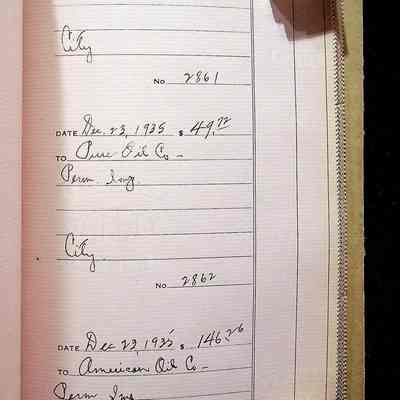 City
No 2861
DATE Dec. 23, 1935 $ 49.72
TO Pure Oil Co –
Perm
City
No 2862
DATE Dec 23, 1935 $ 146.26
TO American Oil Co –
Perm